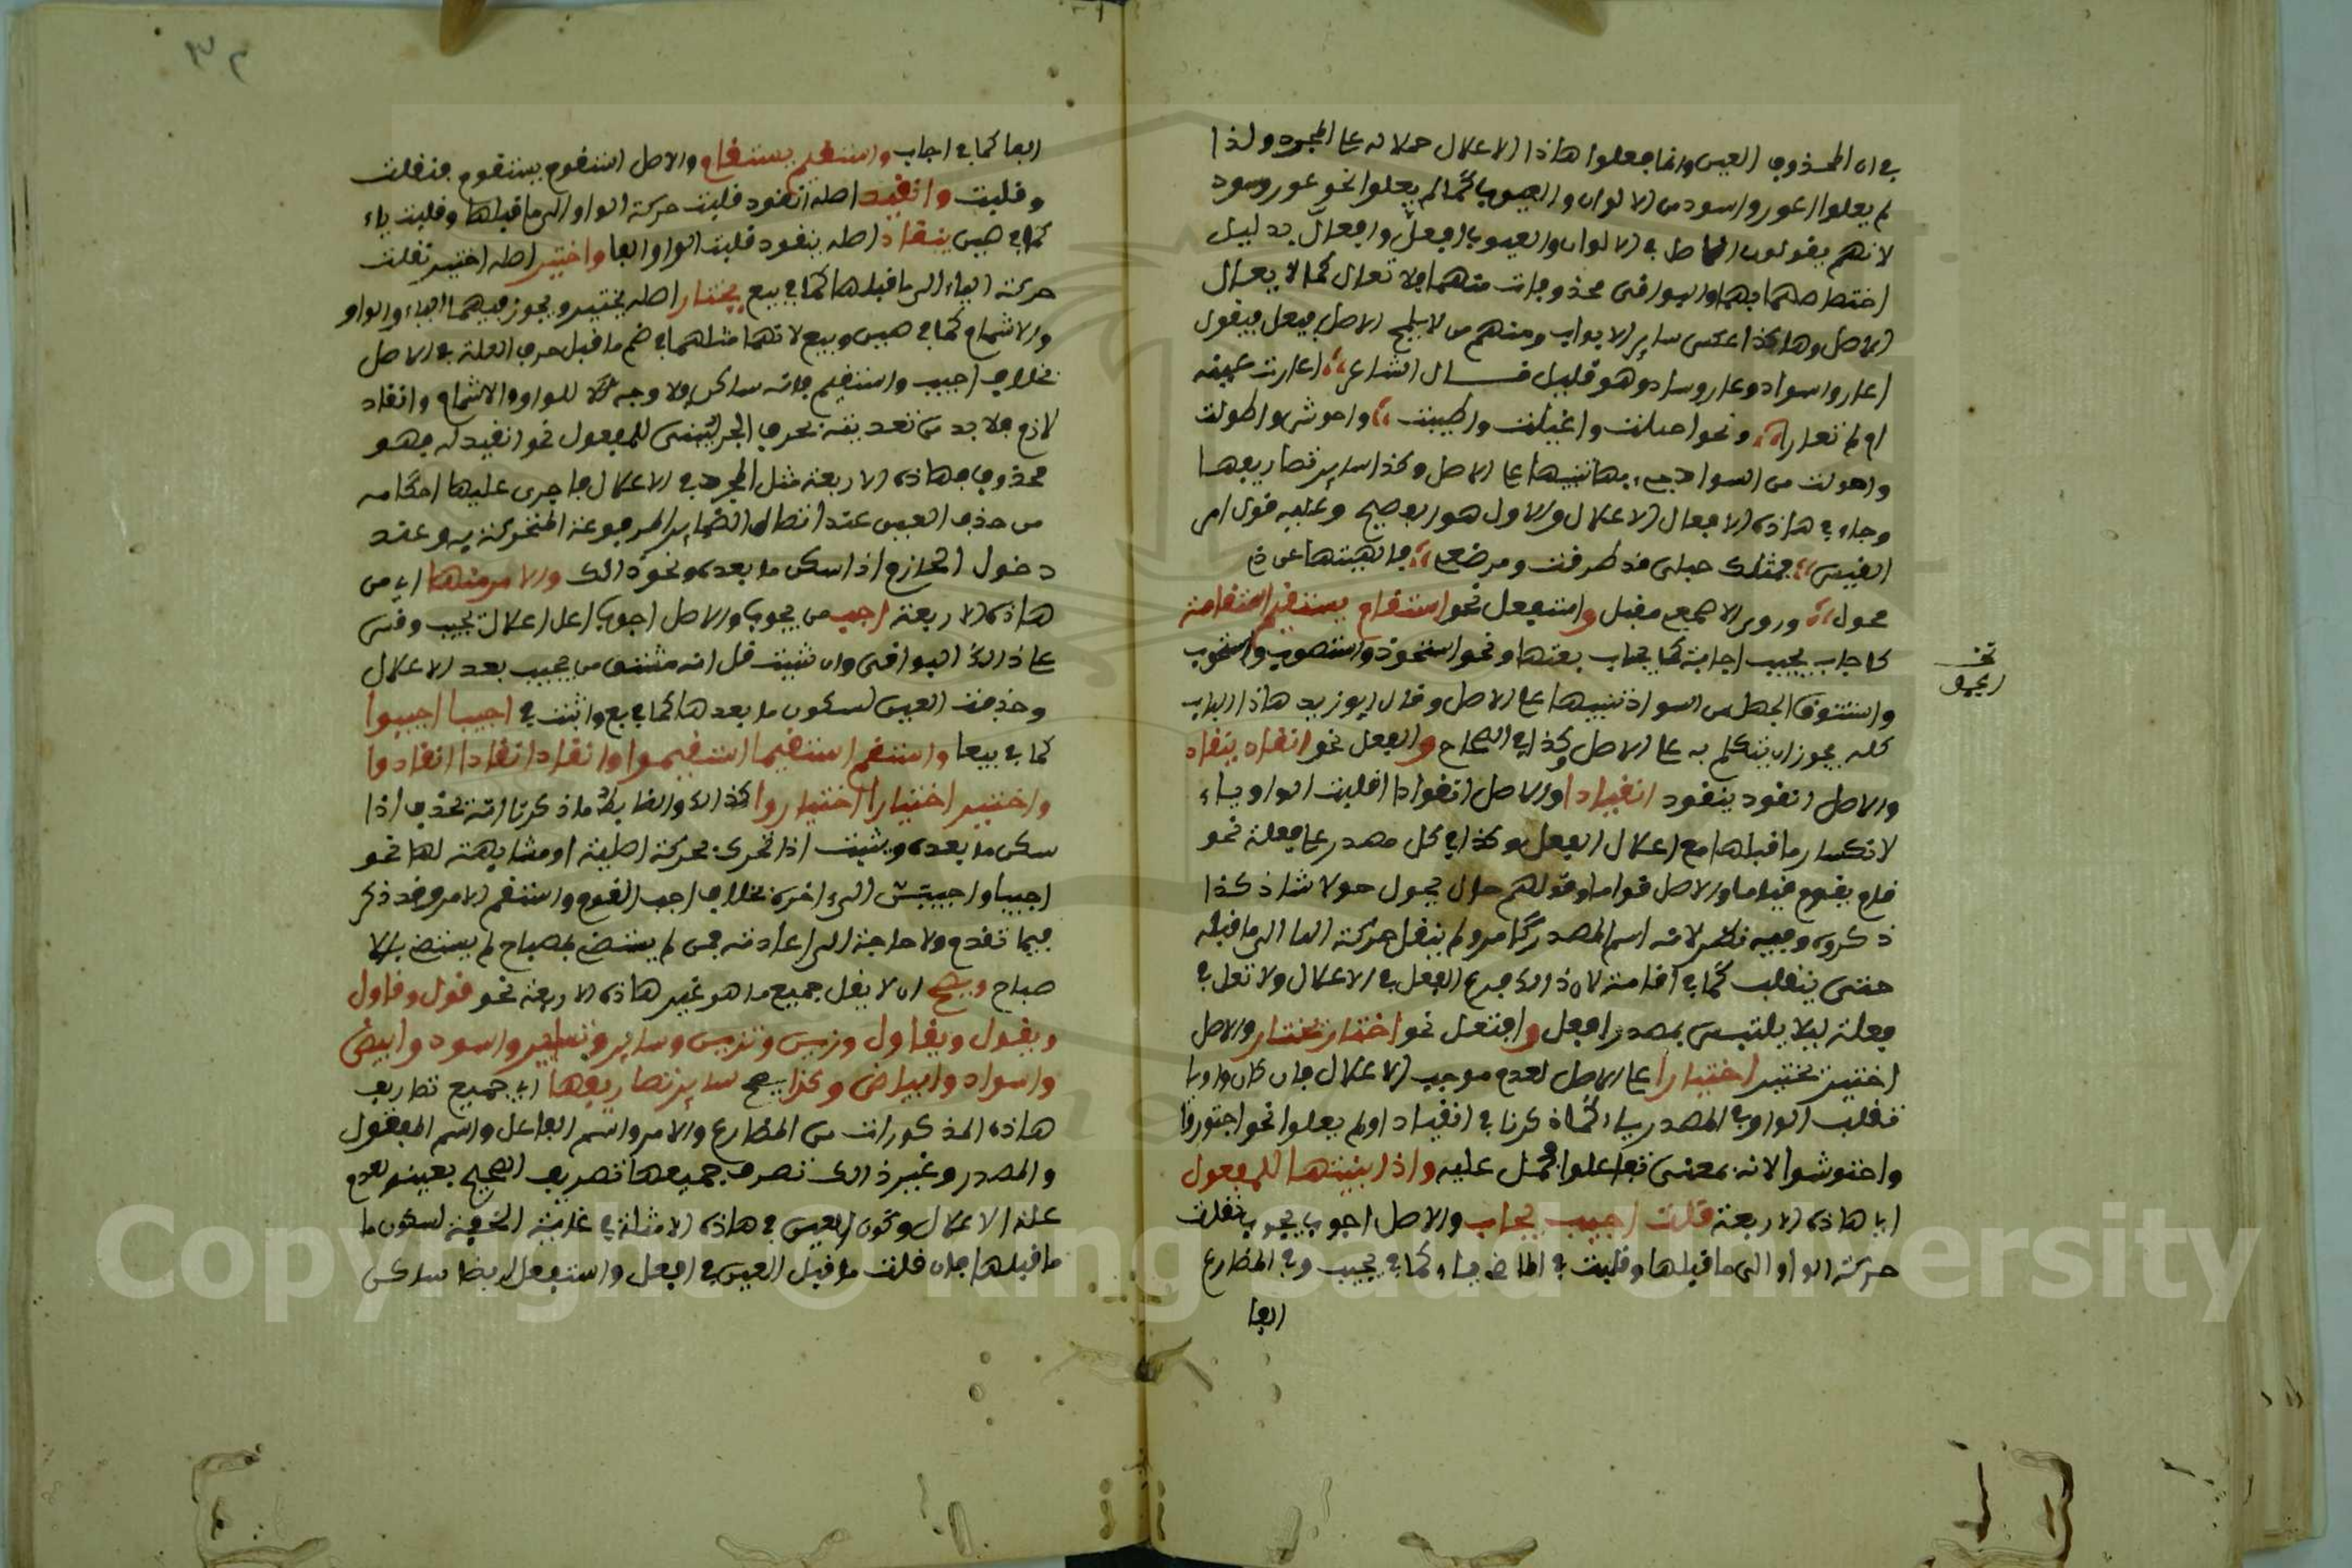 في ان المحذوف العين وانما فعلوا هاذا الاعلال حملا له على المجرد ولذا
لم يعلوا اعور واسود من الالوان والعيوب كما لم يعلوا نحو عور وسود
لانهم يقولون الاصل في الالوان والعيوب افعل وافعال بدليل
اختصاصهما بهما والبواقي محذوفات منهما فلا تعال كما لا يعال
الاصل وهاكذا عكس ساير الابواب ومنهم من لا يلمح الاصل فيعل فيقول
اعار واسواد وعار وساد وهو قليل قال الشاعر اعارت عينه
ام لم تعارا ونحو اعيلت واغيلت واطيبت واحوش واطولت
واحولت من الشواذ جيء بها تنبيها على الاصل وكذا ساير تصاريفها
وجاء في هاذه الافعال الاعلال والاول هو الفصيح وعليه قول امرئ
القيس فمثلك حبلى قد طرقت ومرضع فالهيتها عن ذي
محول وروى الاصمعي مغيل واستفعل نحو استقام يستقيم استقامة
كاجاب يجيب اجابة كما يجاب بعينها ونحو استحوذ واستصوب واستجوب
واستنوق الجمل من الشواذ تنبيها على الاصل وقال ابو زيد هاذا الباب
كله يجوز ان يتكلم به على الاصل وكذا في الصحاح وانفعل نحو انقاد ينقاد
والاصل انقود ينقود انقيادا والاصل انقوادا قلبت الواو ياء
لانكسار ما قبلها مع اعلال الفعل وكذا في كل مصدر على فعلة نحو
قام يقوم قياما والاصل قواما وقولهم حال يحول حولا شاذ كذا
ذكروه وفيه نظر لانه اسم المصدر كما مر ولم ينقل حركة الفا الى ما قبله
حتى ينقلب كما في اقامة لان ذالك فرع الفعل في الاعلال ولا تعل في
فعلة ليلا يلتبس بمصدر افعل وافتعل نحو اختار يختار والاصل
اختير يختير اختيارا على الاصل لعدم موجب الاعلال فان كان واويا
تقلب الواو في المصدر ياء كما ذكرنا في انقيادا ولم يعلوا نحو اجتوروا
واحتوشوا لانه بمعنى تفاعلوا فحمل عليه واذا بنيتها للمفعول
اي هاذه الاربعة قلت اجيب يجاب والاصل اجوب يجوب نقلت
حركة الواو الى ما قبلها وقلبت في الماضي ياء كما في يجيب وفي المضارع
الفا
الفا كما في اجاب واستقيم يستقام والاصل استقوم يستقوم فنقلت
وقلبت وانقيد اصله انقود قلبت حركة الواو الى ما قبلها وقلبت ياء
كما في صين ينقاد اصله ينقود قلبت الواو الفا واختير اصله اختير نقلت
حركة الياء الى ما قبلها كما في بيع يختار اصله يختير ويجوز فيهما الياء والواو
والاشمام كما في صين وبيع لانهما مثلهما في ضم ما قبل حرف العلة في الاصل
بخلاف اجيب واستقيم فانه ساكن فلا وجه للواو والاشمام وانقاد
لازم فلا بد من تعديته بحرف الجر ليبنى للمفعول نحو انقيد له فهو
محذوف فهاذه الاربعة مثل المجرد في الاعلال فاجرى عليها احكامه
من حذف العين عند اتصال الضماير المرفوعة المتحركة به وعند
دخول الجازم اذا سكن ما بعده ونحو ذالك والامر منها اي من
هاذه الاربعة اجب من يجوب والاصل اجوب اعل اعلال تجيب وقس
على ذالك البواقي وان شيت قل انه مشتق من يجيب بعد الاعلال
وحذفت العين لسكون ما بعدها كما في بع واثبت في اجيبا اجيبوا
كما في بيعا واستقم استقيما استقيموا وانقد انقادا انقادوا
واختر اختارا اختاروا كذالك والضابط ما ذكرنا انه يحذف اذا
سكن ما بعده ويثبت اذا تحرك بحركة اصلية او مشابهة لها نحو
اجيبا واجيبن الى اخره بخلاف اجب القوم واستقم الامر وقد ذكر
فيما تقدم ولا حاجة الى اعادته فمن لم يستضئ بمصباح لم يستضئ بالا
صباح ويصح ان لا يعل جميع ما هو غير هاذه الاربعة نحو قول وقاول
وتقول وتقاول وزين وتزين وساير وتساير واسود وابيض
واسواد وابياض وكذا يصح ساير تصاريفها اي جميع تصاريف
هاذه المذكورات من المضارع والامر واسم الفاعل واسم المفعول
والمصدر وغير ذالك تصرف جميعها تصريف الصحيح بعينه لعدم
علة الاعلال وكون العين في هاذه الامثلة في غاية الخفة لسكون ما
ما قبلها فان قلت ما قبل العين في افعل واستفعل ايضا ساكن